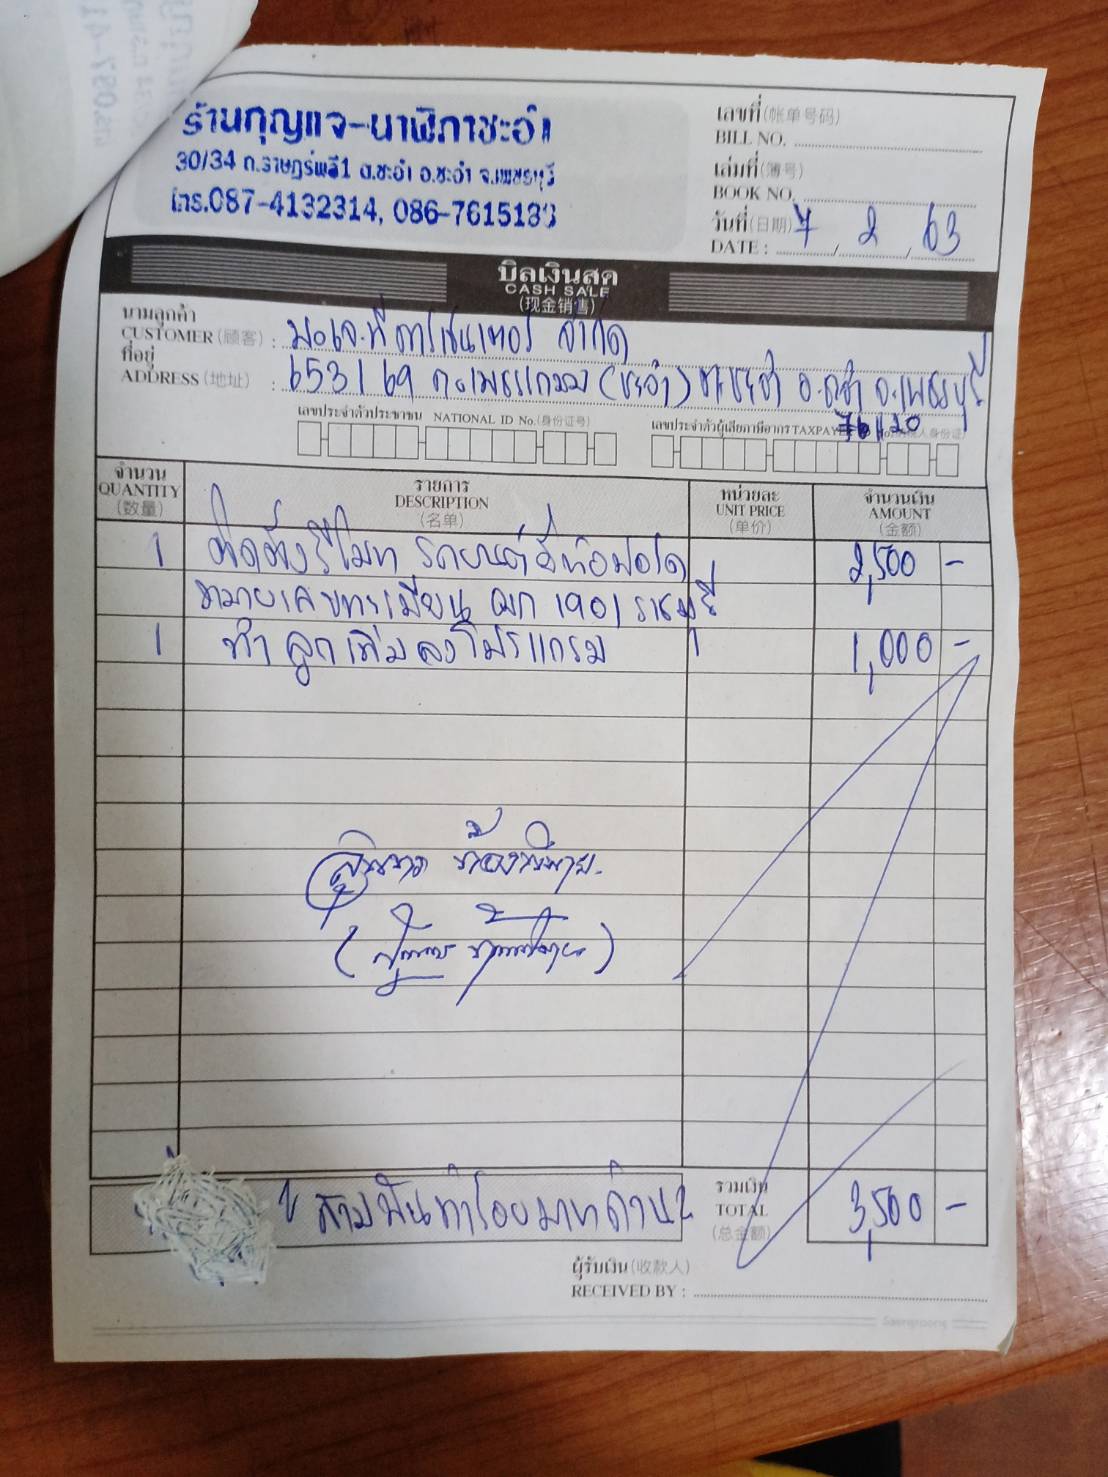 ร้านกุญแจ-นาฬิกาชะอำ
30/34 ถ.ราษฎร์พลี1 ต.ชะอำ อ.ชะอำ จ.เพชรบุรี
โทร.087-4132314, 086-7615183
เลขที่(帐单号码)
BILL NO.
เล่มที่(簿号)
BOOK NO.
วันที่(日期) 7 / 2 / 63
DATE :
บิลเงินสด
CASH SALE
(现金销售)
นามลูกค้า
CUSTOMER(顾客) : จำกัด
ที่อยู่
ADDRESS(地址) : 653/69 ถ.เพชรเกษม (ชะอำ) ต.ชะอำ อ.ชะอำ จ.เพชรบุรี
76120
เลขประจำตัวประชาชน NATIONAL ID No.(身份证号) เลขประจำตัวผู้เสียภาษีอากร TAXPAYER
จำนวน รายการ หน่วยละ จำนวนเงิน
QUANTITY DESCRIPTION UNIT PRICE AMOUNT
(数量) (名单) (单价) (金额)
1 ติดตั้งรีโมท รถยนต์ยี่ห้อฟอร์ด 2,500 -
หมายเลขทะเบียน 1901 ราชบุรี
1 ทำลูกเพิ่มลงโปรแกรม 1,000 -
สามพันห้าร้อยบาทถ้วน
รวมเงิน
TOTAL 3,500 -
(总金额)
ผู้รับเงิน(收款人)
RECEIVED BY :